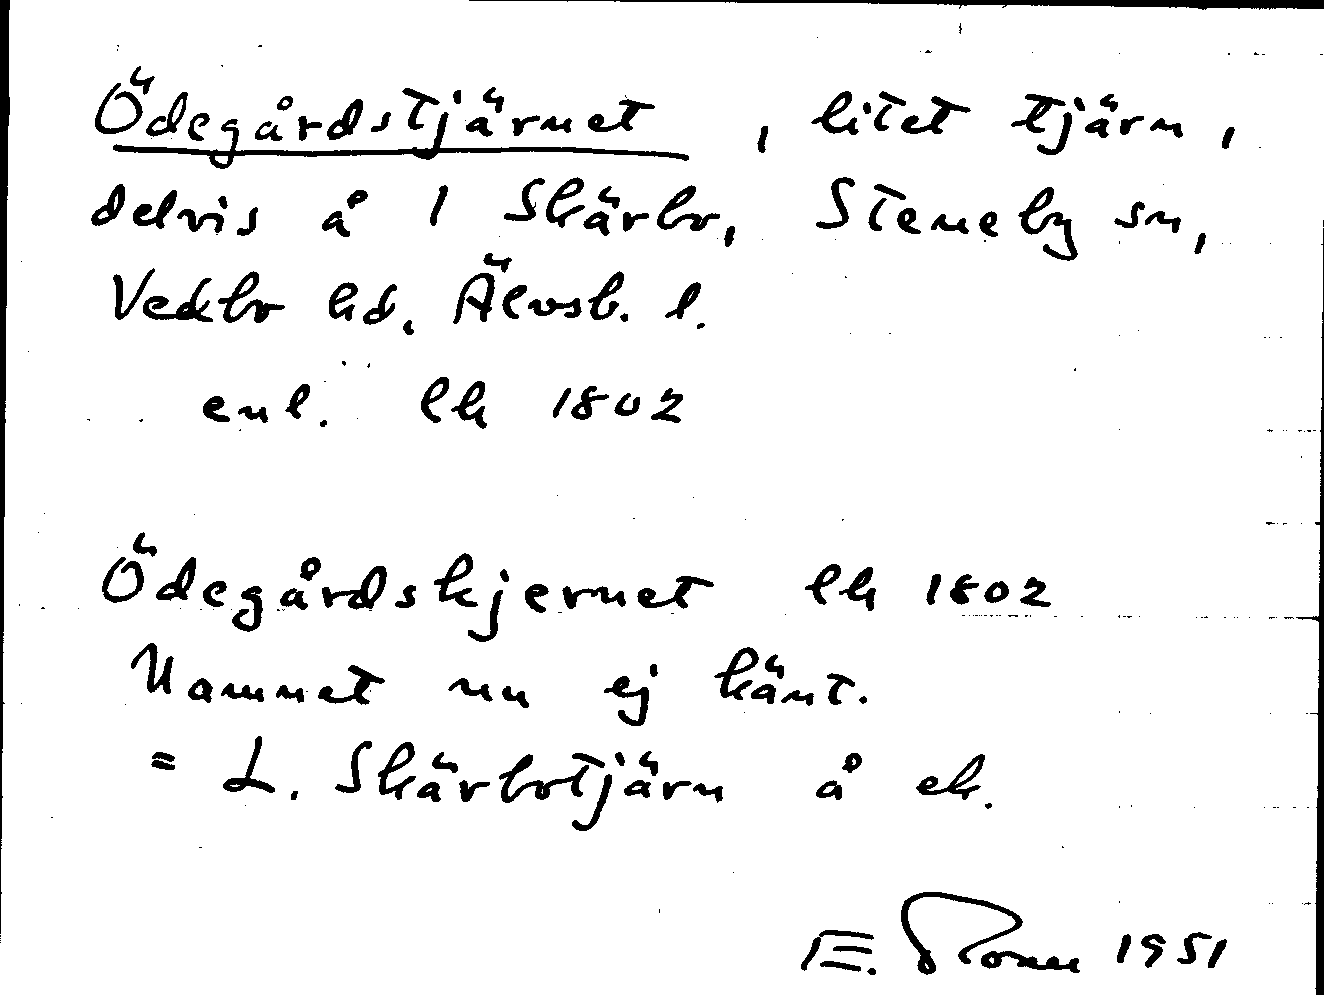 Ödegårdstjärnet, litet tjärn,
delvis å 1 Skärbo, Steneby sn,
Vedbo hd. Älvsb. l.
enl. lk 1802
Ödegårdskjernet lk 1802
Namnet nu ej känt.
= L. Skärbotjärn å ek.
E. 1951